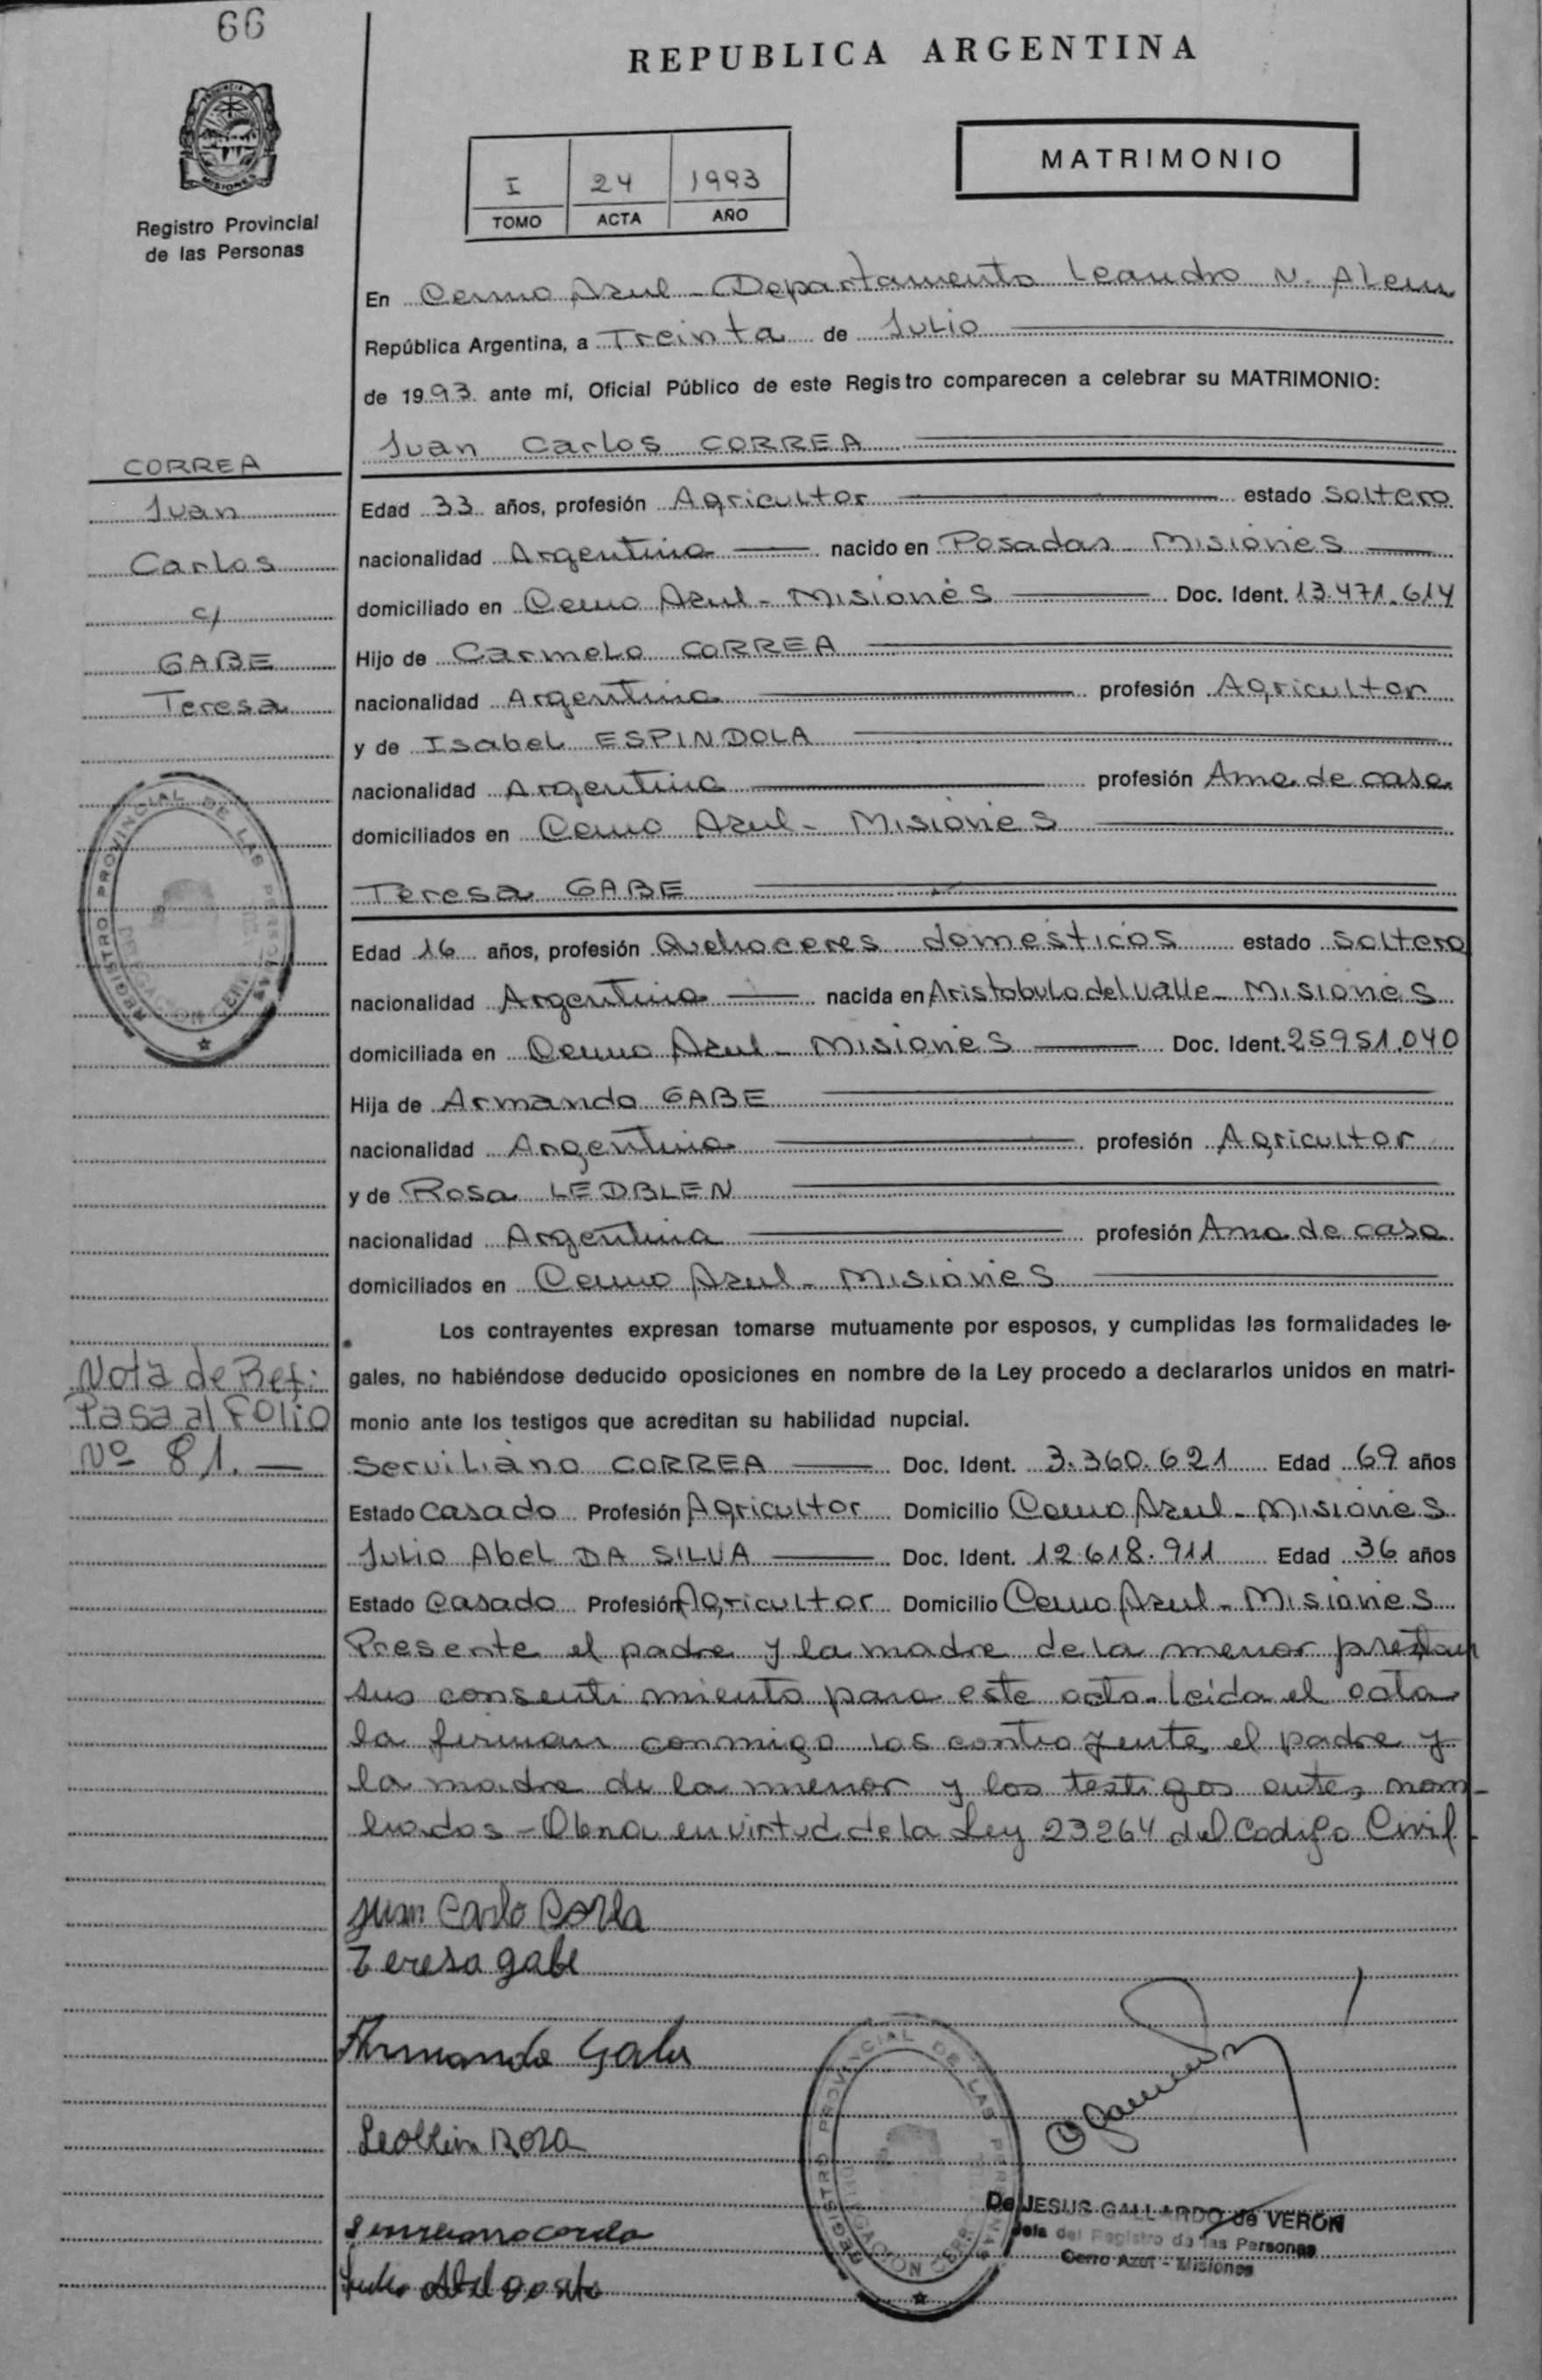 66
REPUBLICA ARGENTINA
MATRIMONIO
I 24 1993
TOMO ACTA AÑO
Registro Provincial
de las Personas
En Cerro Azul - Departamento Leandro N. Alem
República Argentina, a Treinta de Julio
de 1993 ante mí, Oficial Público de este Registro comparecen a celebrar su MATRIMONIO:
Juan Carlos CORREA
CORREA
Juan
Carlos
c/
GABE
Teresa
Edad 33 años, profesión Agricultor estado Soltero
nacionalidad Argentina nacido en Posadas - Misiones
domiciliado en Cerro Azul - Misiones Doc. Ident. 13.471.614
Hijo de Carmelo CORREA
nacionalidad Argentina profesión Agricultor
y de Isabel ESPINDOLA
nacionalidad Argentina profesión Ama de casa
domiciliados en Cerro Azul - Misiones
Teresa GABE
Edad 16 años, profesión Quehaceres domésticos estado Soltera
nacionalidad Argentina nacida en Aristobulo del Valle - Misiones
domiciliada en Cerro Azul - Misiones Doc. Ident. 25951.040
Hija de Armando GABE
nacionalidad Argentina profesión Agricultor
y de Rosa LEDBLEN
nacionalidad Argentina profesión Ama de casa
domiciliados en Cerro Azul - Misiones
Los contrayentes expresan tomarse mutuamente por esposos, y cumplidas las formalidades le-
gales, no habiéndose deducido oposiciones en nombre de la Ley procedo a declararlos unidos en matri-
monio ante los testigos que acreditan su habilidad nupcial.
Nota de Ref:
Pasa al Folio
Nº 81. —
Serviliano CORREA Doc. Ident. 3.360.621 Edad 69 años
Estado Casado Profesión Agricultor Domicilio Cerro Azul - Misiones
Julio Abel DA SILVA Doc. Ident. 12.618.911 Edad 36 años
Estado Casado Profesión Agricultor Domicilio Cerro Azul - Misiones
Presente el padre y la madre de la menor prestan
sus consentimiento para este acto. Leida el acta
la firman conmigo los contrayente, el padre y
la madre de la menor y los testigos antes nom-
brados - Obra en virtud de la Ley 23264 del Codigo Civil
Juan Carlo
Teresa gabe
Armando Gabe
Rosa
REGISTRO PROVINCIAL DE LAS PERSONAS
DELEGACION CERR
REGISTRO PROVINCIAL DE LAS PERSONAS
DELEGACION CERR
De JESUS GALLARDO de VERON
Jefa del Registro de las Personas
Cerro Azul - Misiones